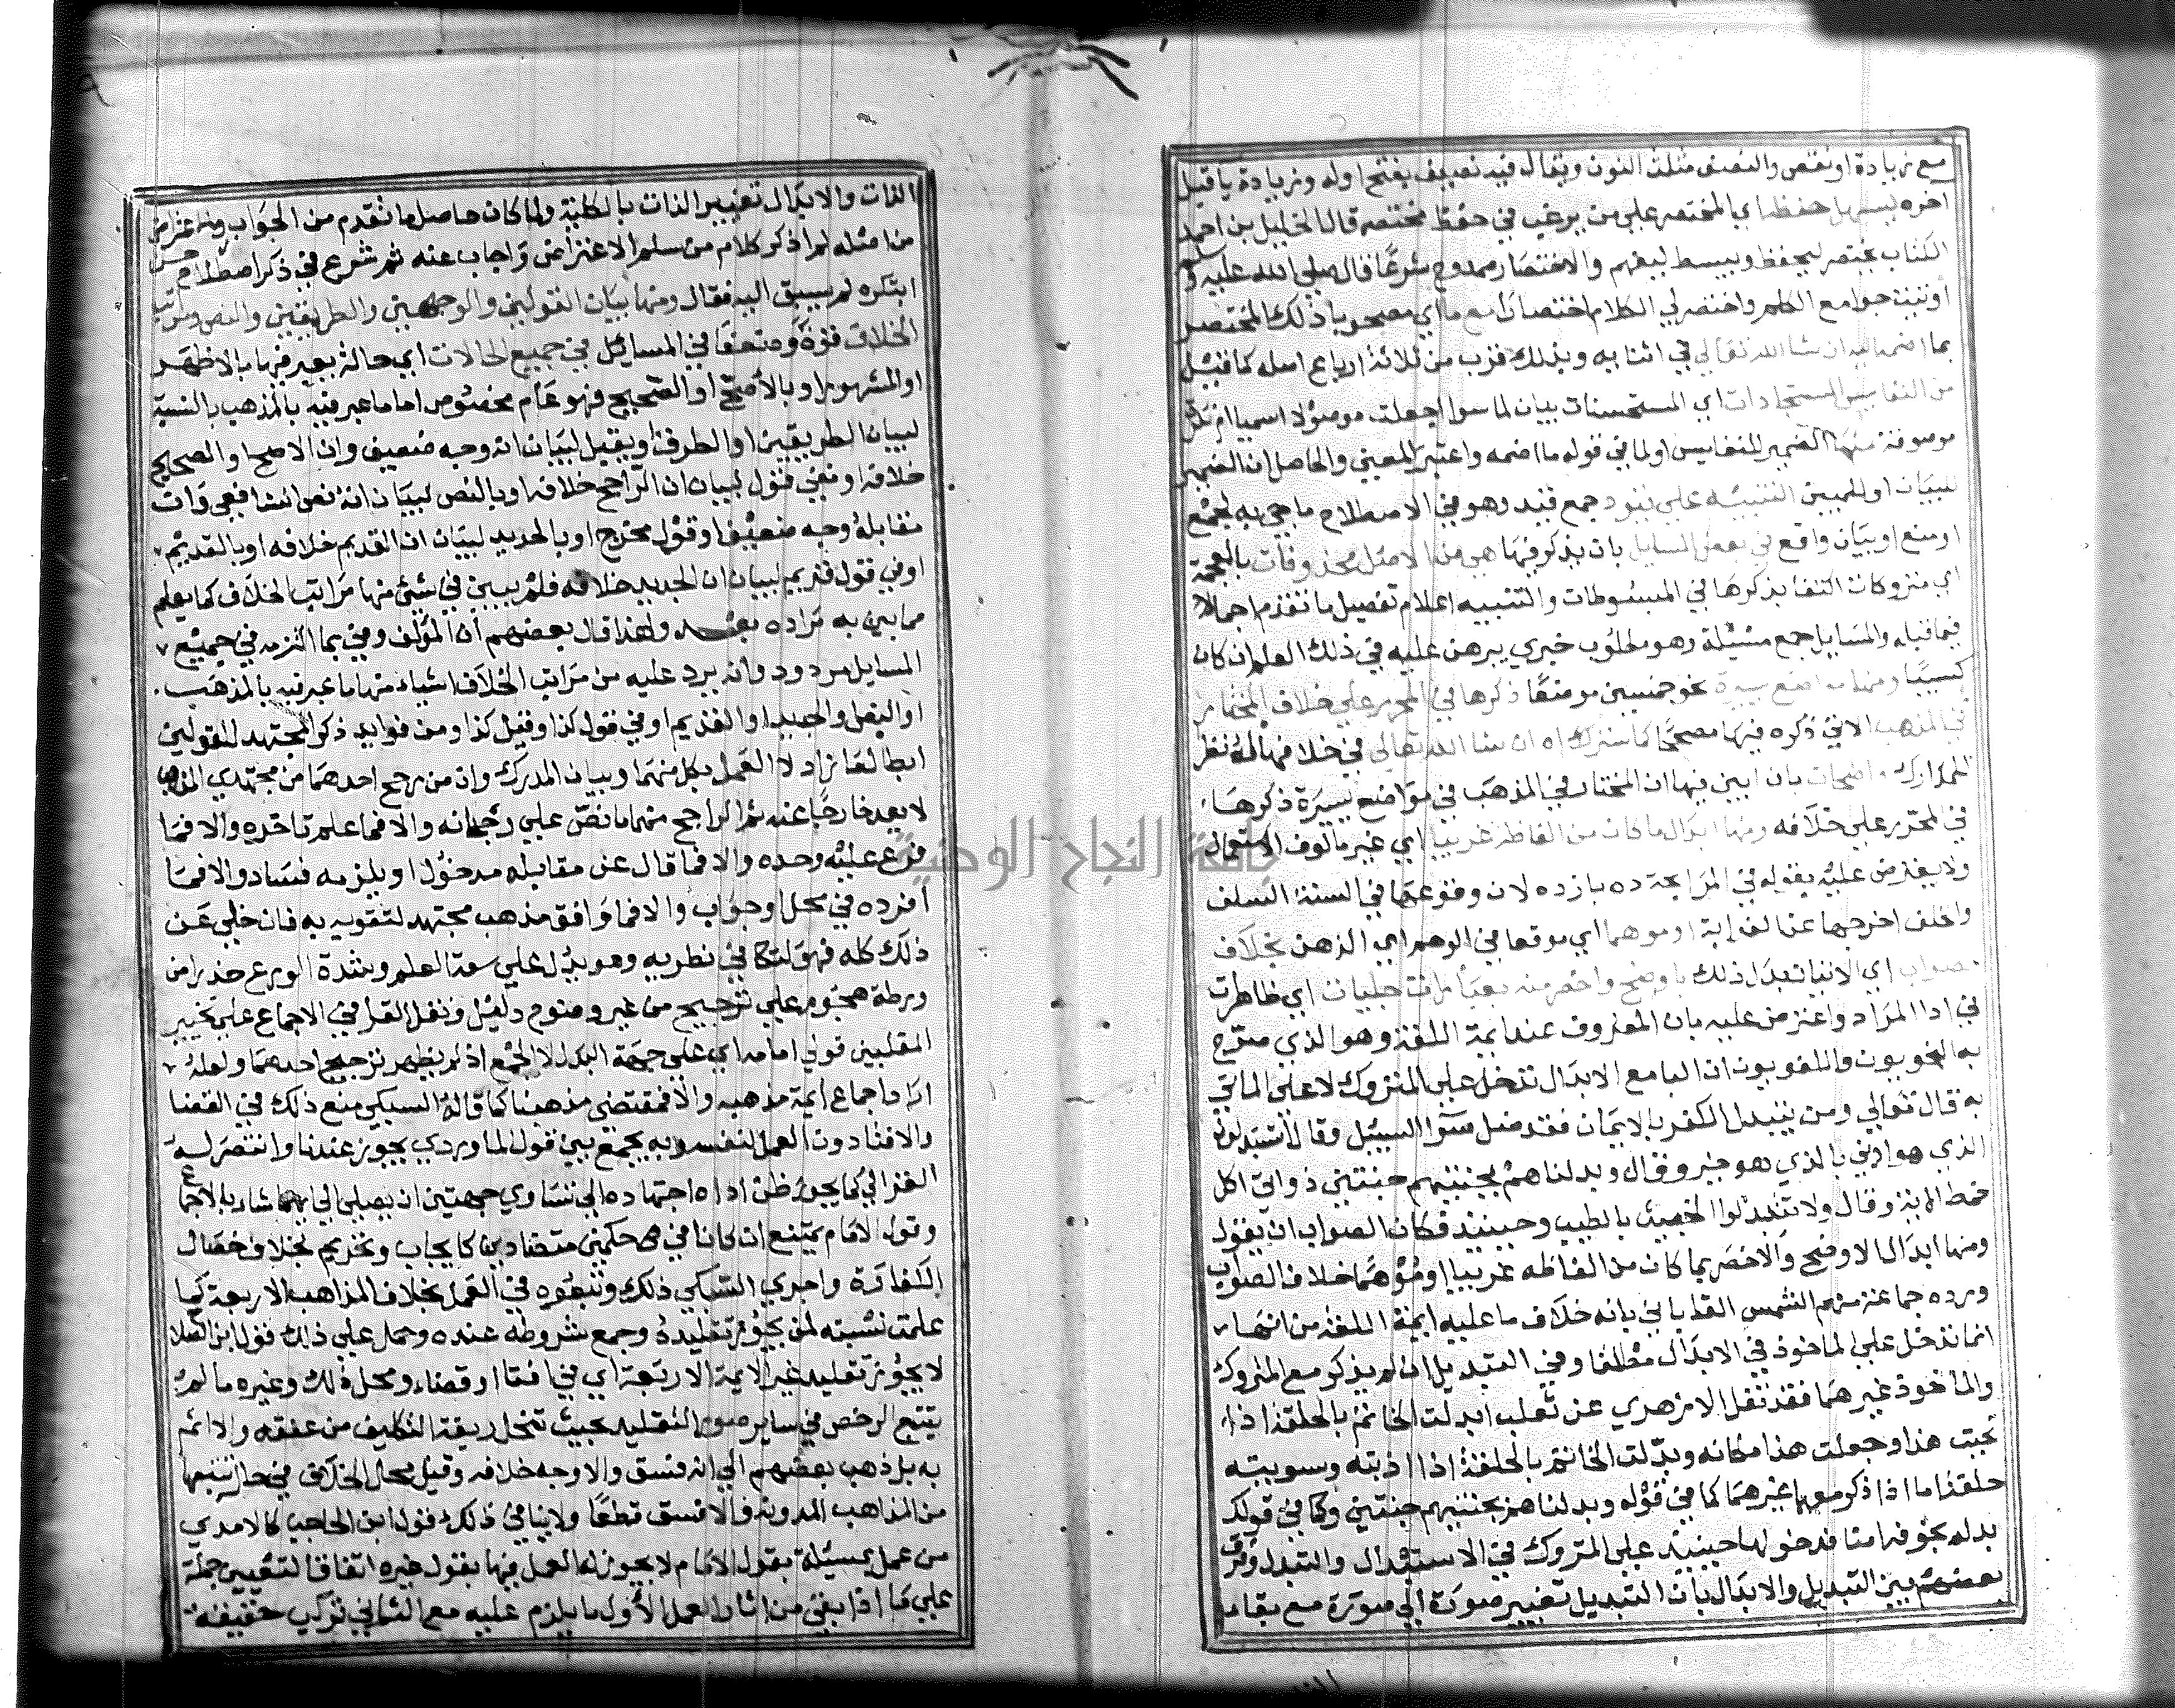 مع زيادة او نقص والنصف مثلث النون ويقال فيه نصيف بفتح اوله وزيادة يا قبل
اخره ليسهل حفظه اي المختصر على من يرغب في حفظ مختصر قال الخليل بن احمد
الكتاب يختصر ليحفظ ويبسط ليفهم والاختصار ممدوح شرعا قال صلي الله عليه وسلم
اوتيت جوامع الكلم واختصر لي الكلام اختصارا مع ما اي مصحوبا ذلك المختصر
بما اضمه اليه ان شا الله تعالي في اثنايه وبذلك قرب من ثلاثة ارباع اصله كما قيل
من النفايس المستجادات اي المستحسنات بيان لما سوا اجعلت موصولا اسميا ام نكرة
موصوفة منها الضمير للنفايس او لما في قوله ما اضمه واعتبر المعني والحاصل ان الضمير
للبيان او للمبين التنبيه علي قيود جمع قيد وهو في الاصطلاح ما جي به لجمع
او منع او بيان واقع في بعض المسايل بان يذكر فيها هي من الاصل محذوفات بالمعجمة
اي متروكات اكتفا بذكرها في المبسوطات والتنبيه اعلام تفصيل ما تقدم اجمالا
فيما قبله والمسايل جمع مسئلة وهو مطلوب خبري يبرهن عليه في ذلك العلم ان كان
كسبيا ومنها مواضع يسيرة نحو خمسين موضعا ذكرها في المحرر علي خلاف المختار
في المذهب الاتي ذكره فيها مصححا كما ستراه ان شا الله تعالي في خلافها له نظر
للمدارك واضحات بان ابين فيها ان المختار في المذهب في مواضع يسيرة ذكرها
في المحرر علي خلافه ومنها ابدال ما كان من الفاظه غريبا اي غير مالوف الاستعمال
ولا يعترض عليه بقوله في المرابحة ده يازده لان وقوعها في السنة السلف
والخلف اخرجها عن الغرابة او موهما اي موقعا في الوهم اي الذهن بخلاف
صواب اي الاتيان بدل ذلك باوضح واخصر منه بعبارات جليات اي ظاهرات
في ادا المراد واعترض عليه بان المعروف عند ايمة اللغة وهو الذي صرح
به النحويون واللغويون ان البا مع الابدال تدخل علي المتروك لا علي الماتي
به قال تعالي ومن يتبدل الكفر بالايمان فقد ضل سوا السبيل وقال اتستبدلون
الذي هو ادني بالذي هو خير وقال وبدلناهم بجنتيهم جنتين ذواتي اكل
خمط الاية وقال ولا تتبدلوا الخبيث بالطيب وحينيذ فكان الصواب ان يقول
ومنها ابدال الاوضح والاخصر بما كان من الفاظه غريبا او موهما خلاف الصواب
ورده جماعة منهم الشمس القاياتي بانه خلاف ما عليه ايمة اللغة من انها
انما تدخل علي الماخوذ في الابدال مطلقا وفي التبديل ان لم يذكر مع المتروك
والماخوذ غيرهما فقد نقل الازهري عن ثعلب ابدلت الخاتم بالحلقة اذا
نحيت هذا وجعلت هذا مكانه وبدلت الخاتم بالحلقة اذا اذبته وسويته
حلقة اما اذا ذكر معهما غيرهما كما في قوله وبدلناهم بجنتيهم جنتين وكما في قولك
بدله بخوفه امنا فدخولها حينيذ علي المتروك في الاستبدال والتبدل وفرق
بعضهم بين التبديل والابدال بان التبديل تغيير صورة الي صورة مع بقاء
الذات والابدال تغيير الذات بالكلية ولما كان حاصل ما تقدم من الجواب
من امثله لم اذكر كلام من سلم الاعتراض واجاب عنه ثم شرع في ذكر اصطلاح حسن
ابتكره لم يسبق اليه فقال ومنها بيان القولين والوجهين والطريقين والنص ومراتب
الخلاف قوة وضعفا في المسائل في جميع الحالات اي حالة يعبر فيها بالاظهر
او المشهور او بالاصح او الصحيح فهو عام مخصوص اما ما عبر فيه بالمذهب بالنسبة
لبيان الطريقين او الطرق او بقيل لبيان انه وجه ضعيف وان الاصح او الصحيح
خلافه او بفي قول لبيان ان الراجح خلافه او بالنص لبيان انه نص الشافعي وان
مقابله وجه ضعيف او قول مخرج او بالجديد لبيان ان القديم خلافه او بالقديم
او في قول قديم لبيان ان الجديد خلافه فلم يبين في شئ منها مراتب الخلاف كما يعلم
مما بين به مراده بعد ولهذا قال بعضهم ان المؤلف وفي بما التزمه في جميع
المسايل مردود وانه يرد عليه من مراتب الخلاف اشياء منها ما عبر فيه بالمذهب
او النص والجديد او القديم او في قول كذا وقيل كذا ومن فوايد ذكر المجتهد للقولين
ابطال ما زاد لا العمل بكل منهما وبيان المدرك وان من رجح احدهما من مجتهدي المذهب
لا يعد خارجا عنه ثم الراجح منهما ما نص علي رجحانه والا فما علم تاخره والا فما
فرع عليه وحده والا فما قال عن مقابله مدخول او يلزمه فساد والا فما
افرده في محل او جواب والا فما وافق مذهب مجتهد لتقويه به فان خلي عن
ذلك كله فهو لتكافئ نظريه وهو يدل علي سعة العلم وشدة الورع حذرا من
ورطة هجوم علي ترجيح من غير وضوح دليل ونقل القرافي الاجماع علي تخيير
المقلد بين قولي امامه اي علي جهة البدل لا الجمع اذ لم يظهر ترجيح احدهما ولعله
اراد اجماع ايمة مذهبه والا فمقتضي مذهبنا كما قاله السبكي منع ذلك في القضا
والافتا دون العمل لنفسه وبه يجمع بين قول الماوردي يجوز عندنا وانتصر له
الغزالي كما يجوز لمن اداه اجتهاده الي تساوي جهتين ان يصلي الي ايهما شاء بالاجماع
وقول الامام يمتنع ان كانا في حكمين متضادين كايجاب وتحريم بخلاف خصال
الكفارة واجري السبكي ذلك وتبعوه في العمل بخلاف المذاهب الاربعة مما
علمت نسبته لمن يجوز تقليده وجمع شروطه عنده وحمل علي ذلك قول ابن الصلاح
لا يجوز تقليد غير الايمة الاربعة اي في افتا او قضاء ومحل ذلك وغيره ما لم
يتتبع الرخص في ساير صور التقليد بحيث تنحل ربقة التكليف من عنقه والا اثم
به بل ذهب بعضهم الي انه فسق والاوجه خلافه وقيل محل الخلاف في حال تتبعها
من المذاهب المدونة والا فسق قطعا ولا ينافي ذلك قول ابن الحاجب كالامدي
من عمل بمسئلة بقول الامام لا يجوز له العمل فيها بقول غيره اتفاقا لتعيين حمله
علي ما اذا بقي من اثار العمل الاول ما يلزم عليه مع الثاني تركب حقيقة
جامعة النجاح الوطنية